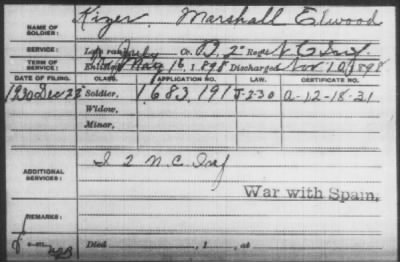 NAME OF SOLDIER: Kizer, Marshall Elwood
SERVICE: Late rank, Co. B, 2" Reg't N.C. Inf
TERM OF SERVICE: Enlisted May 16, 1898 Discharged Nov 10, 1898
DATE OF FILING. CLASS. APPLICATION NO. LAW. CERTIFICATE NO.
1930 Dec 23 Soldier, 1.683.191 J-2-30 a-12-18-31
Widow,
Minor,
ADDITIONAL SERVICES: I 2 N.C. Inf
War with Spain.
REMARKS:
Died , 1 , at